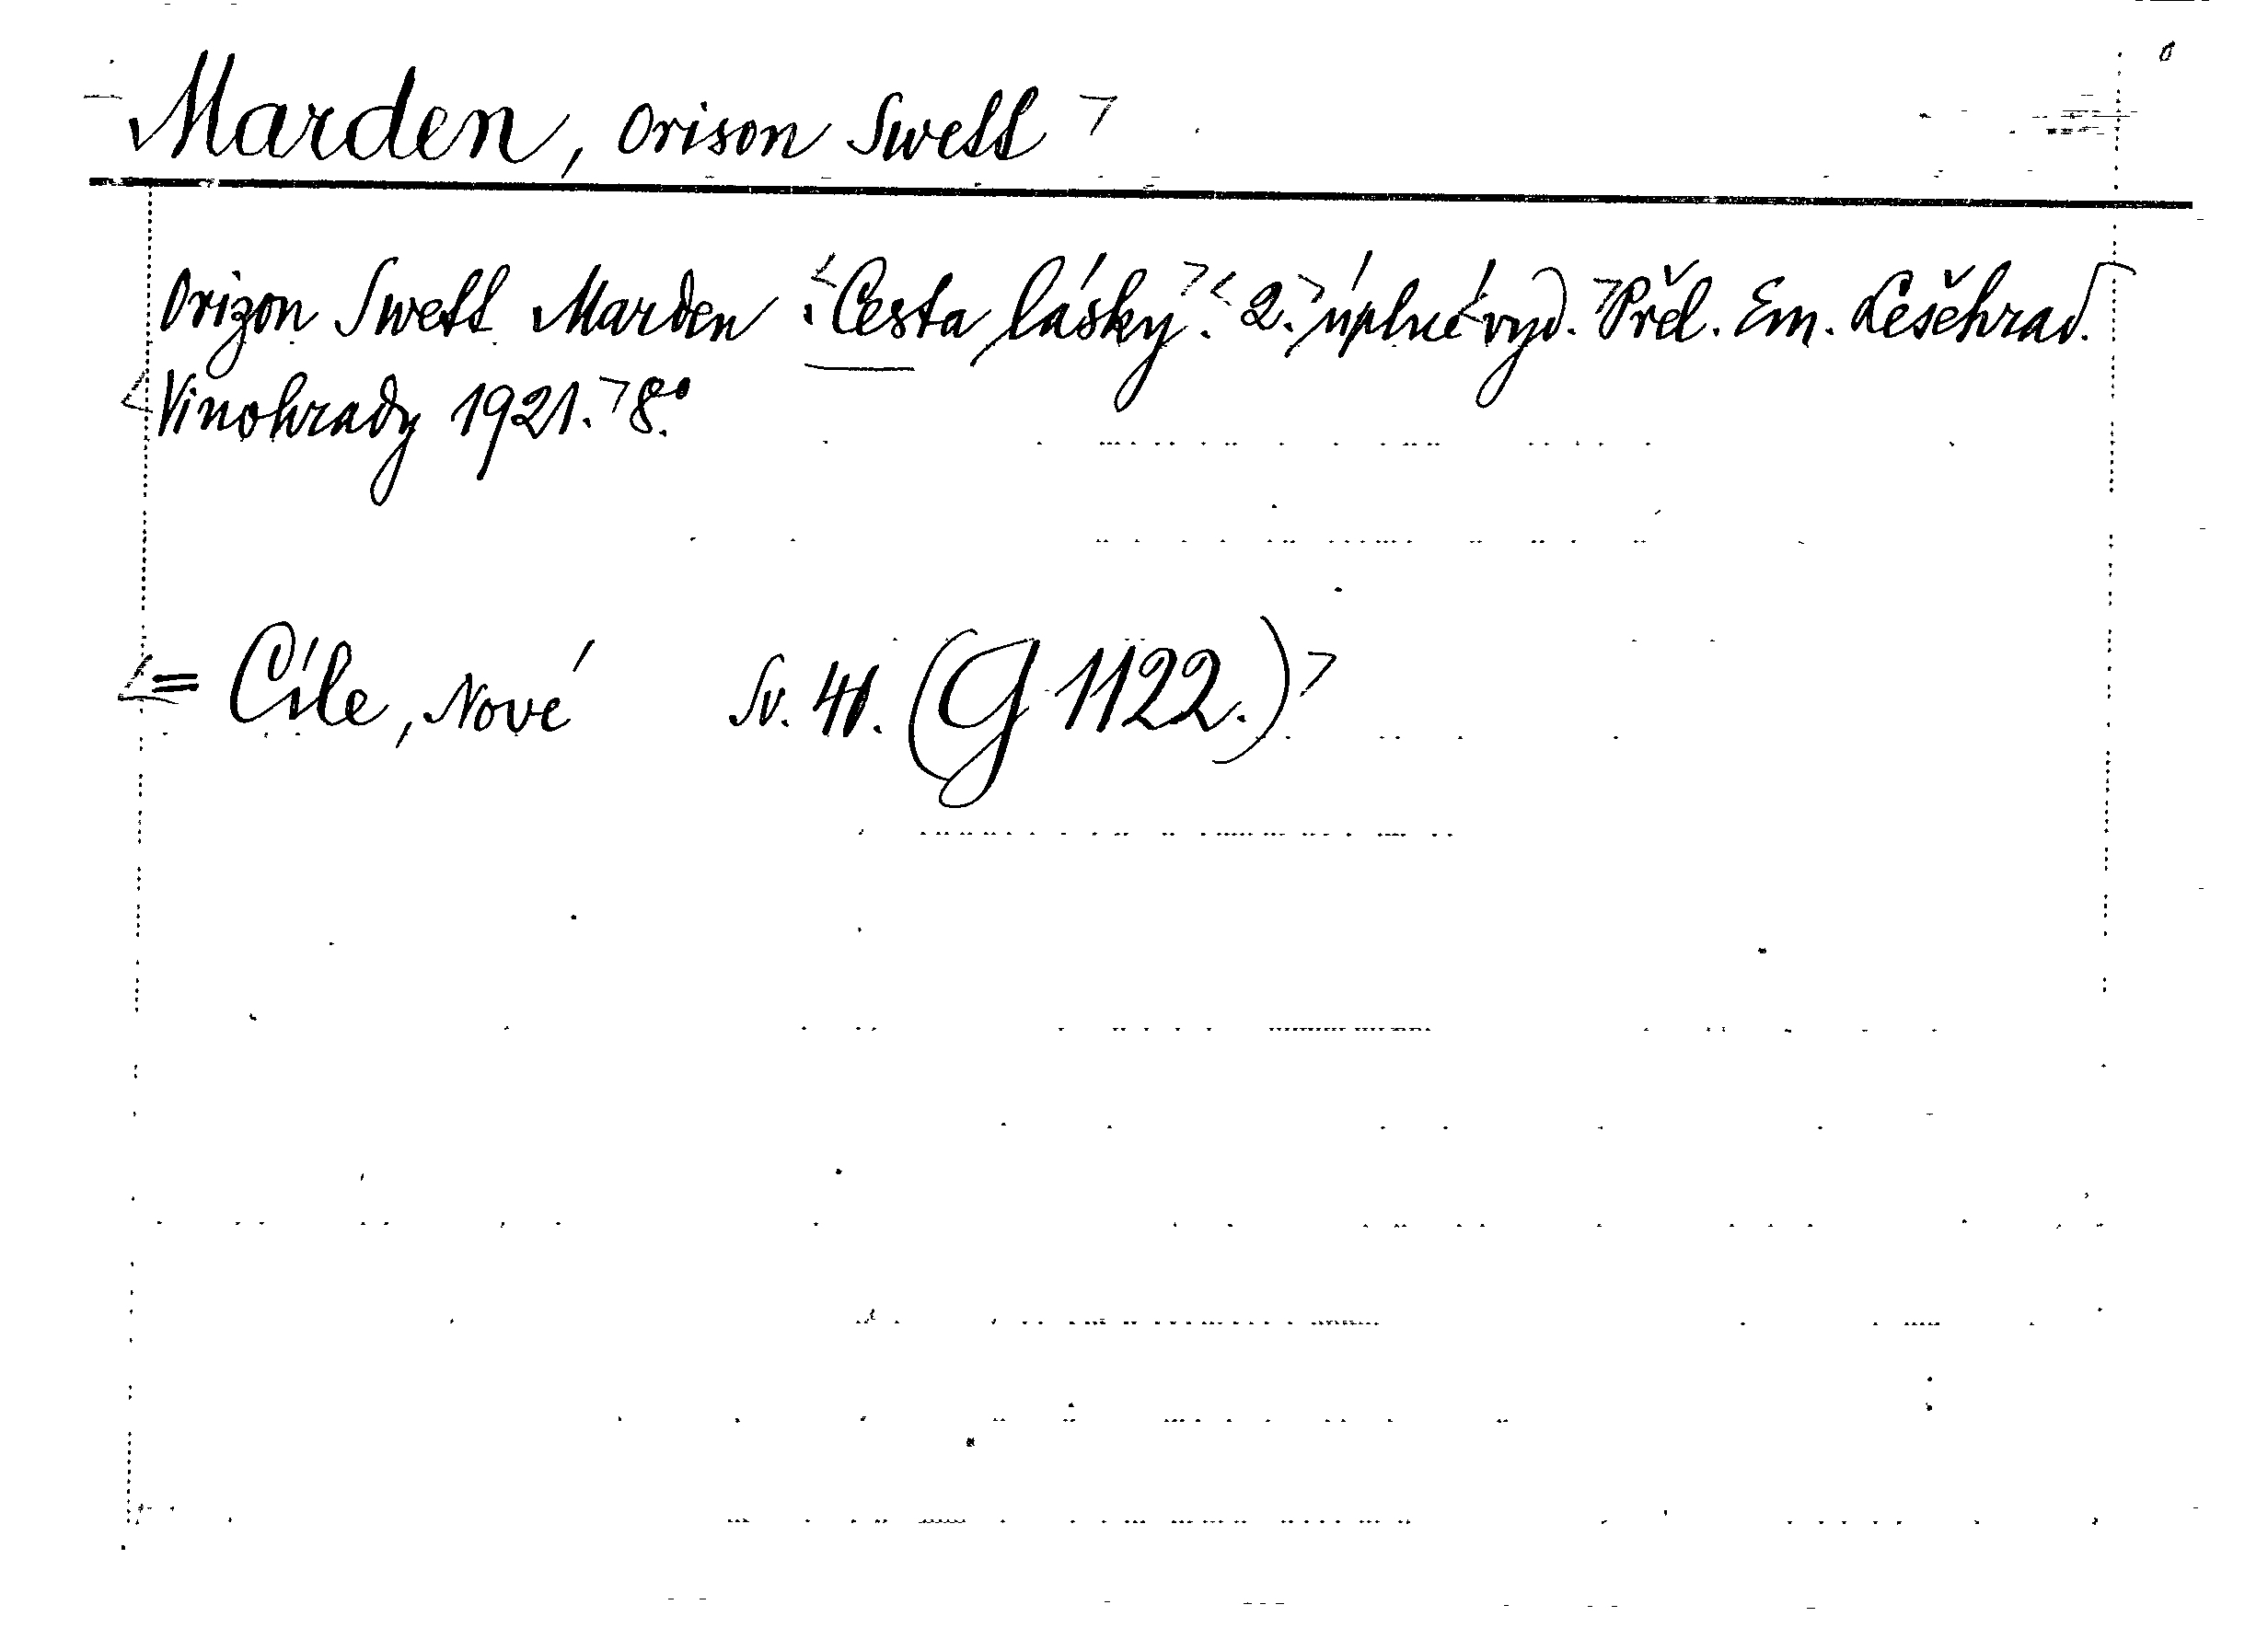 Marden, Orison Swett
Orizon Swett Marden: Cesta lásky. 2. úplné vyd. Přel. Em. Lešehrad.
Vinohrady 1921. 8°.
= Cíle, Nové Sv. 41. (G 1122.)